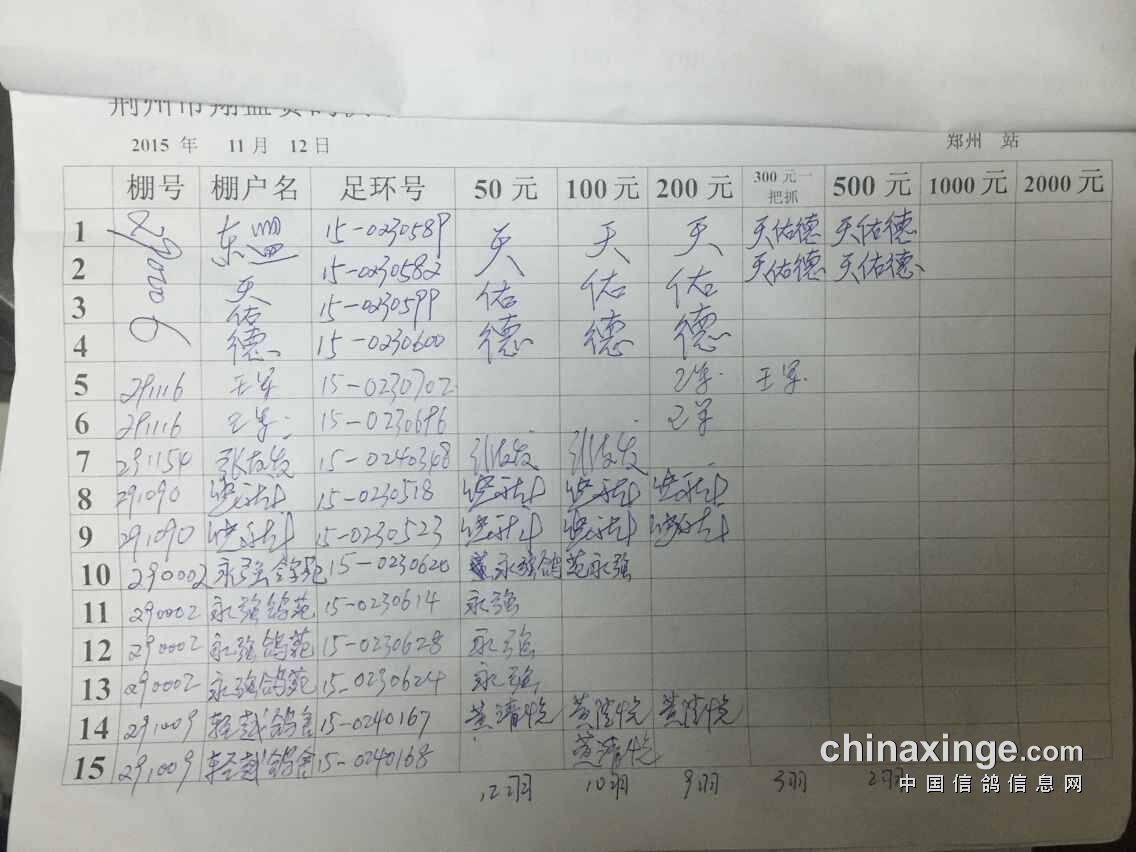 2015 年 11 月 12 日 郑州 站
棚号 棚户名 足环号 50 元 100 元 200 元 300 元一把抓 500 元 1000 元 2000 元
1 东盟 15-0230589 天 天 天 天佑德 天佑德
2 天 15-0230582 天佑德 天佑德
3 佑 15-0230599 佑 佑 佑
4 德 15-0230600 德 德 德
5 291116 王军 15-0230702 王军 王军
6 291116 王军 15-0230696 王军
7 291154 15-0240368
8 291090 15-0230518
9 291090 15-0230523
10 290002 永强鸽苑 15-0230620 永强鸽苑 永强
11 290002 永强鸽苑 15-0230614 永强
12 290002 永强鸽苑 15-0230628 永强
13 290002 永强鸽苑 15-0230624 永强
14 291009 鸽舍 15-0240167
15 291009 鸽舍 15-0240168
12羽 10羽 9羽 3羽 2羽
chinaxinge.com
中国信鸽信息网